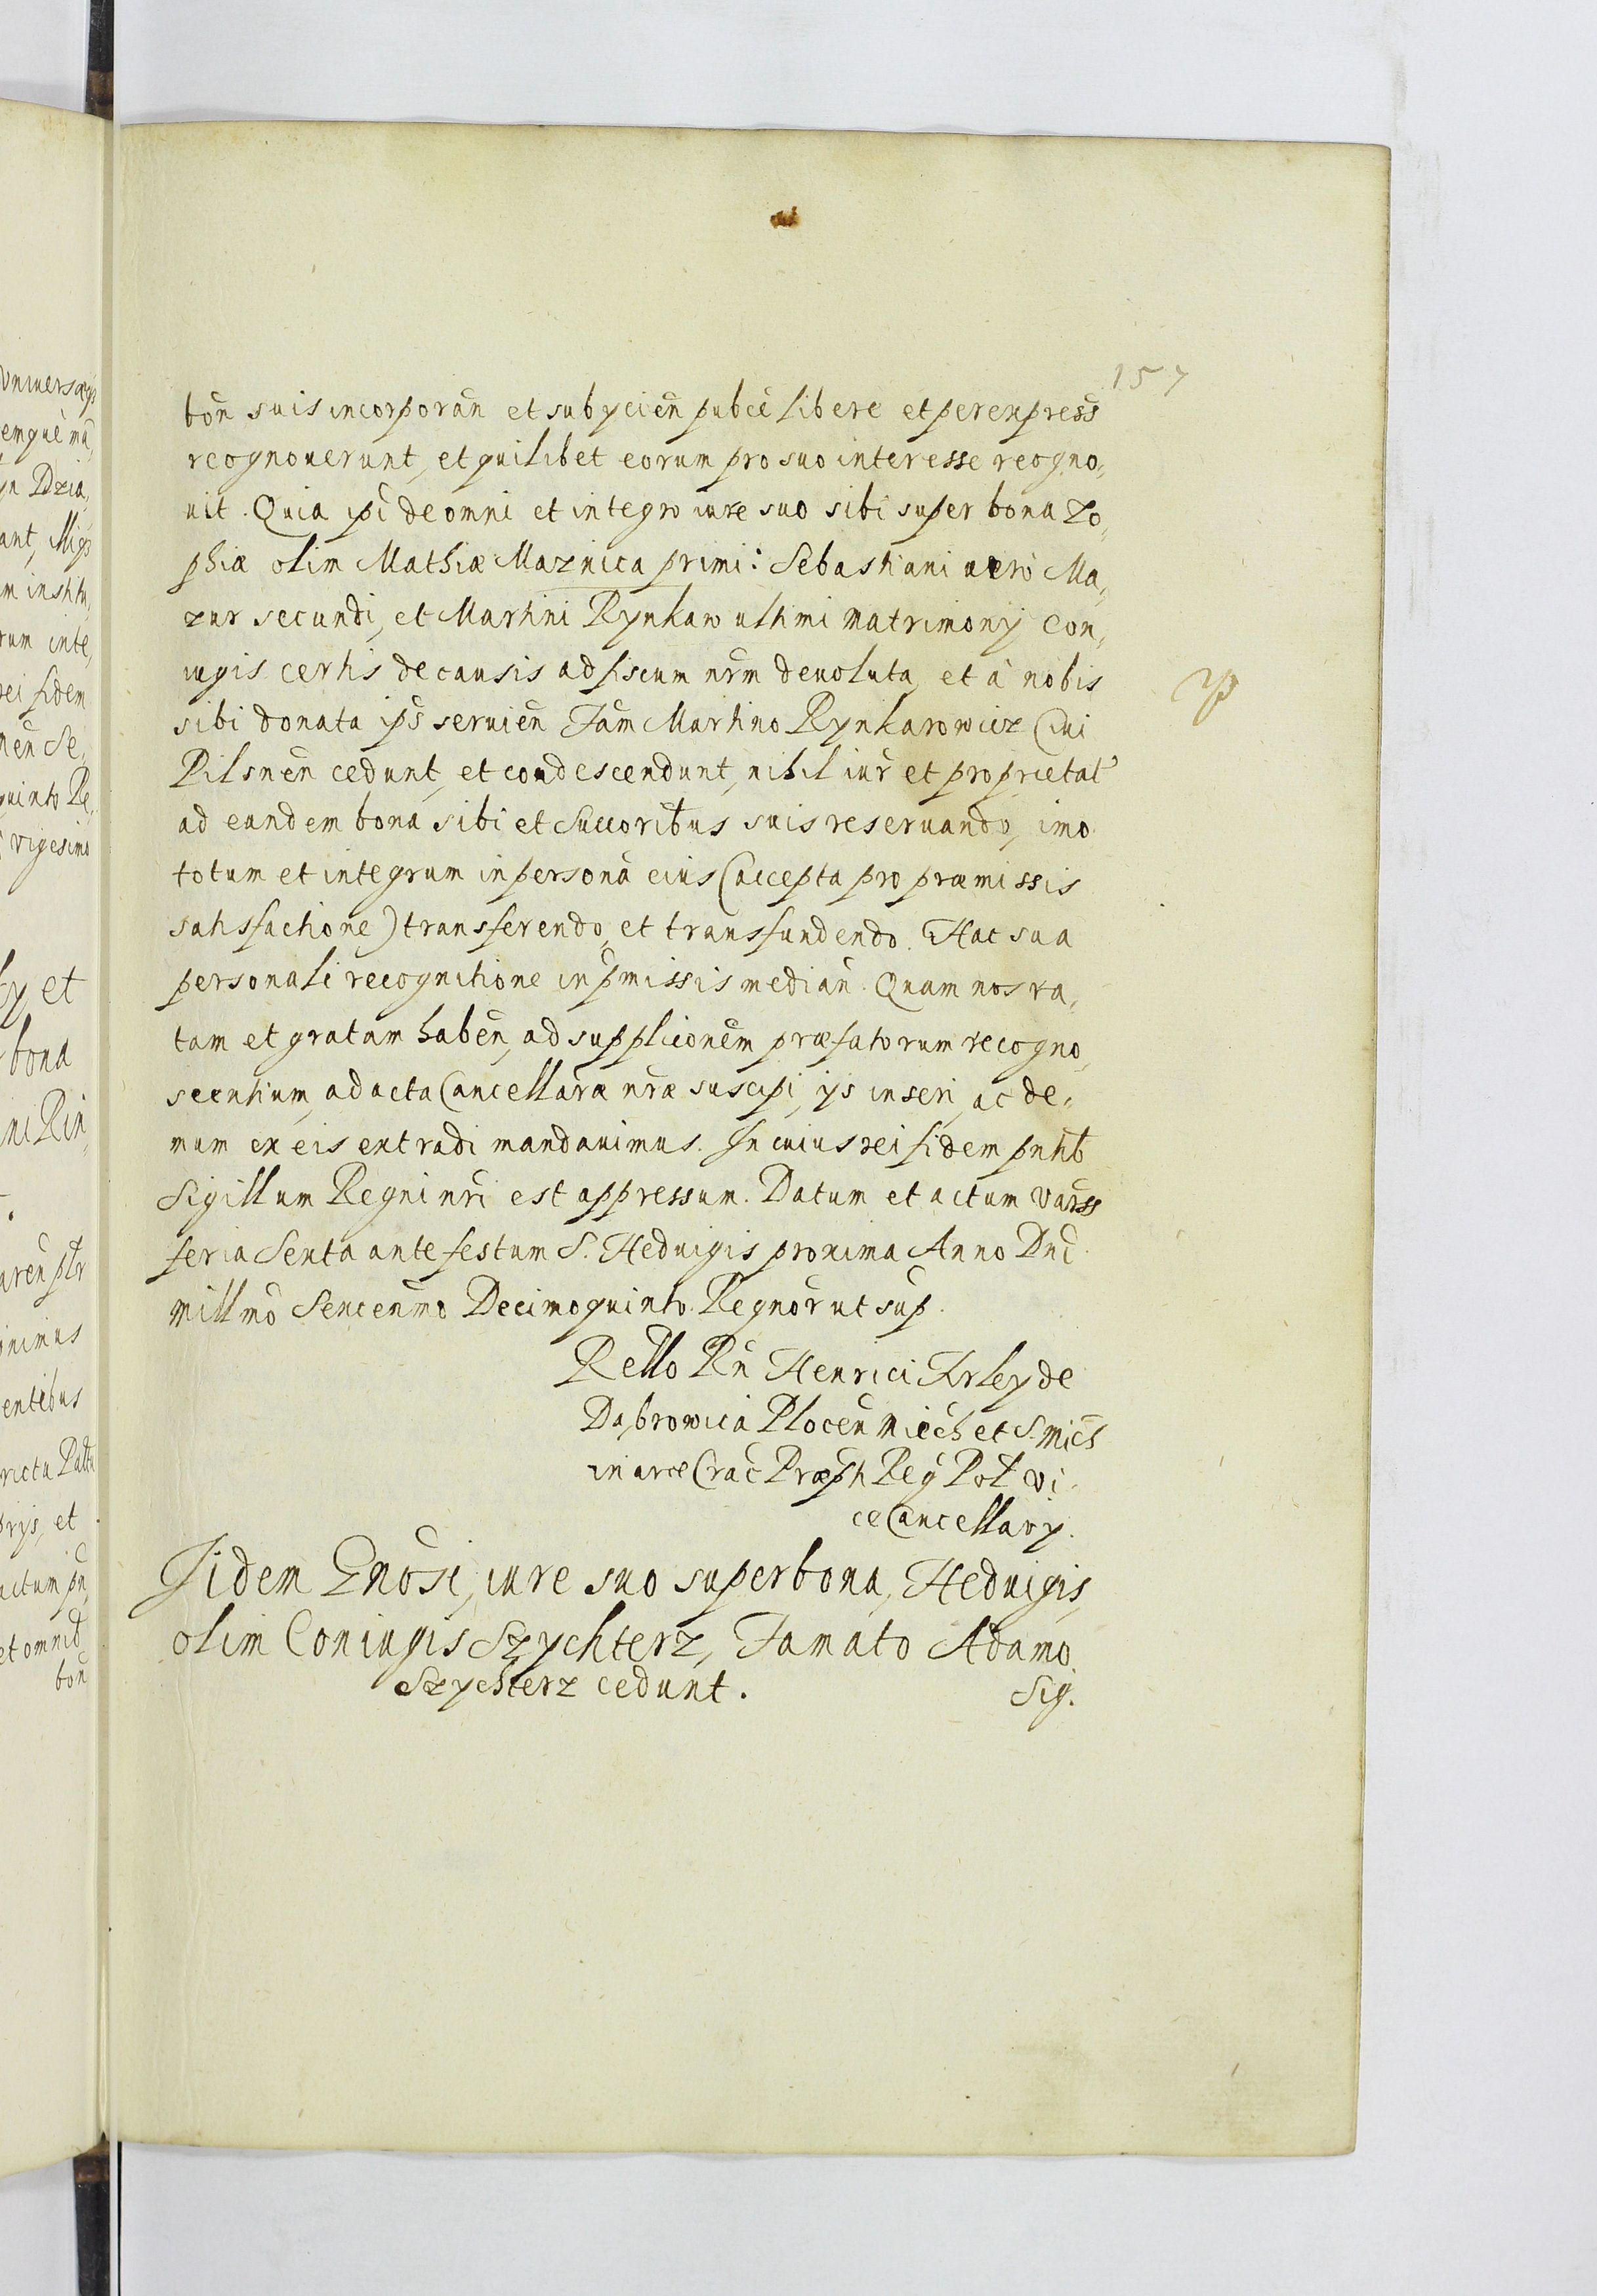 157
bon̄ suis incorporan̄ et subycien̄ pubcē libere et per express̄
recognouerunt, et quilibet eorum pro suo interesse recogno,
uit. Quia ipī de omni et integro iure suo sibi super bona Zo,
phiæ olim Mathiæ Maznica primi: Sebastiani uerò Ma,
zur secundi, et Martini Rynkaw ultimi Matrimonÿ Con,
iugis certis de causis ad fiscum nrm̄ deuoluta, et à nobis
sibi donata ips̄ seruien̄ Fam̄ Martino Rynkarowicz Ciui
Pilsnen̄ cedunt, et condescendunt, nihil iur̄ et proprietat̄
ad eandem bona sibi et Succoribus suis reseruando, imo
totum et integrum in personā eius (accepta pro præmissis
satisfactione) transferendo, et transfundendo. Hac sua
personali recognitione in pm̄issis median̄. Quam nos ra,
tam et gratam haben̄, ad supplicionem̄ præfatorum recogno,
scentium, ad acta Cancellariæ nr̄æ suscipi, ijs inseri, ac de,
mum ex eis extradi mandauimus. In cuius rei fidem pn̄tib
Sigillum Regni nr̄i est appressum. Datum et actum Varss
feria Sexta ante festum S. Heduigis proxima Anno Dnī
Millmō Sexcenmō Decimoquinto. Regnor̄ ut sup̄.
Rello Rn̄ Henrici Firley de
Dąbrowica Plocen̄ Miech et S. Mich
in arce Crac̄ Præpti Reg̃ Pol̄ Vi,
ce Cancellarÿ.
Iidem Gnōsi, iure suo super bona, Heduigis,
olim Coniugis Szychterz, Famato Adamo
Szychterz cedunt.
Sig.